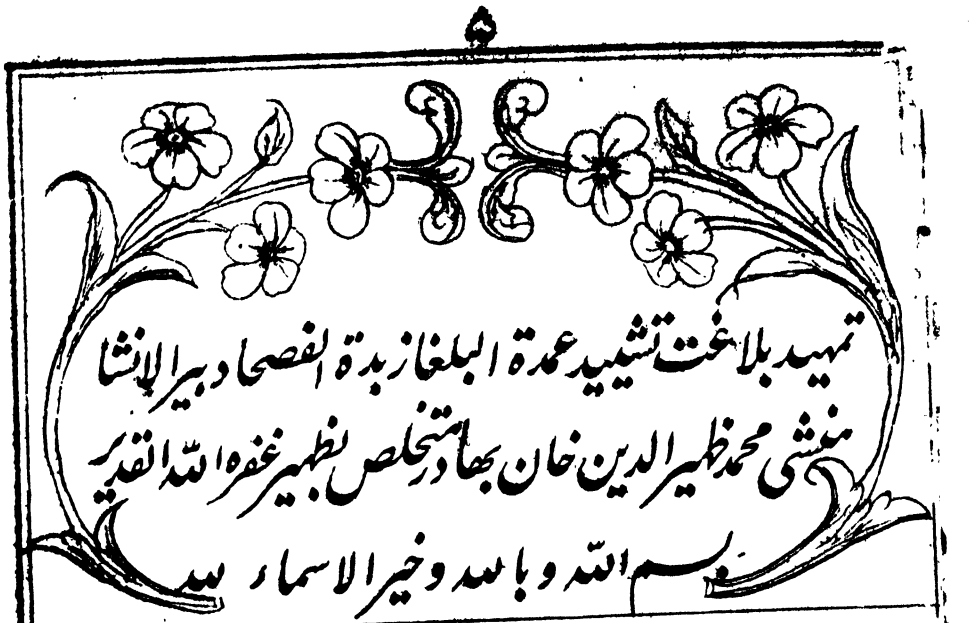 تمہید بلاغت تشیید عمدة البلغا زبدة الفصحا دبیر الانشا
منشی محمد ظہیر الدین خان بہادر متخلص بظہیر غفرہ اللہ القدیر
بسم اللہ و باللہ و خیر الاسماء للہ